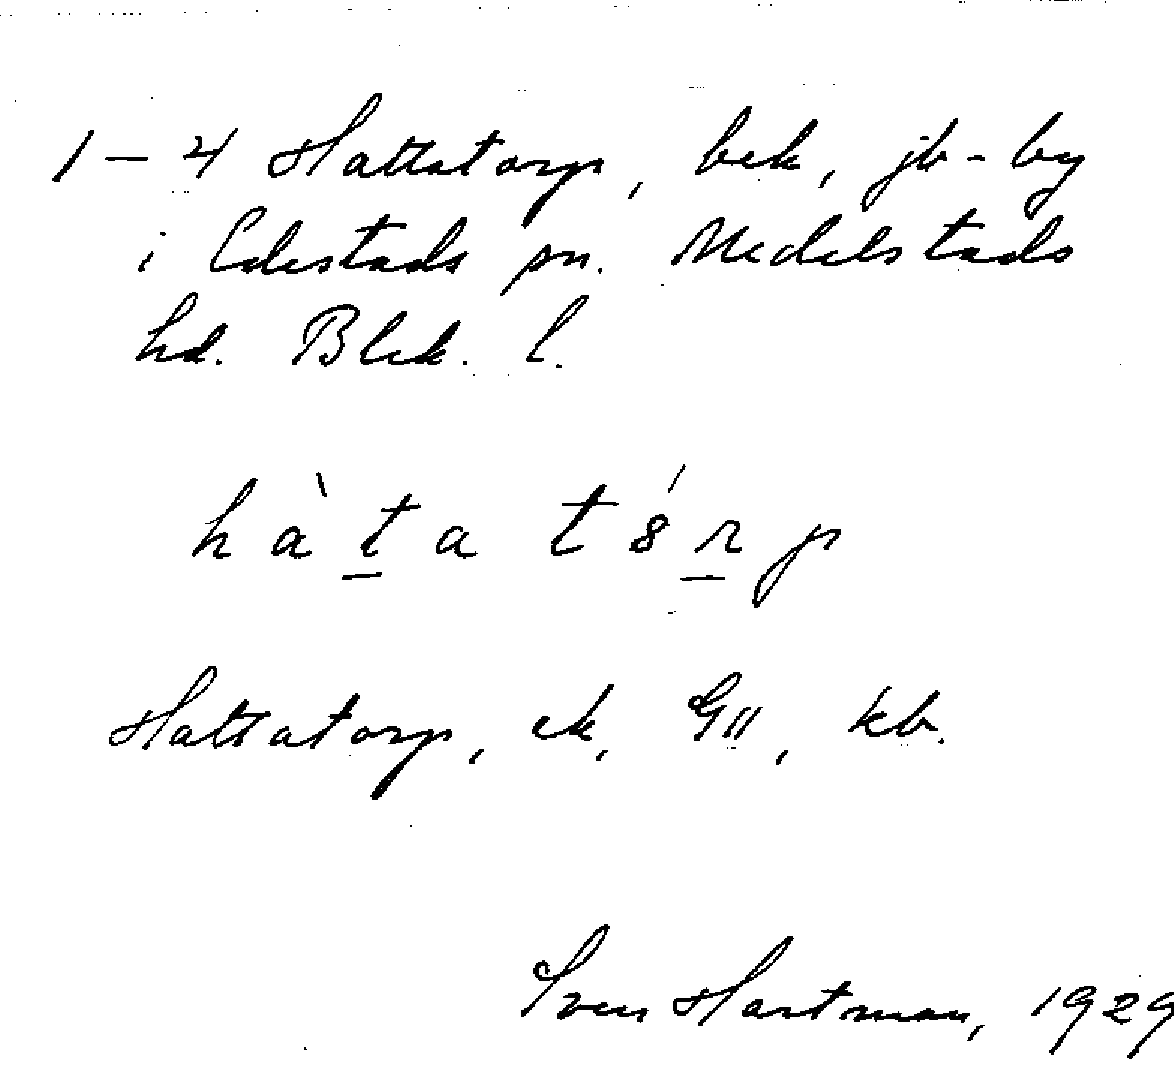 1–4 Hattatorp, bek, jb-by
i Edestads sn. Medelstads
hd. Blek. l.
hàtatórp
Hattatorp, ek, GII, kb.
Sven Hartman, 1929